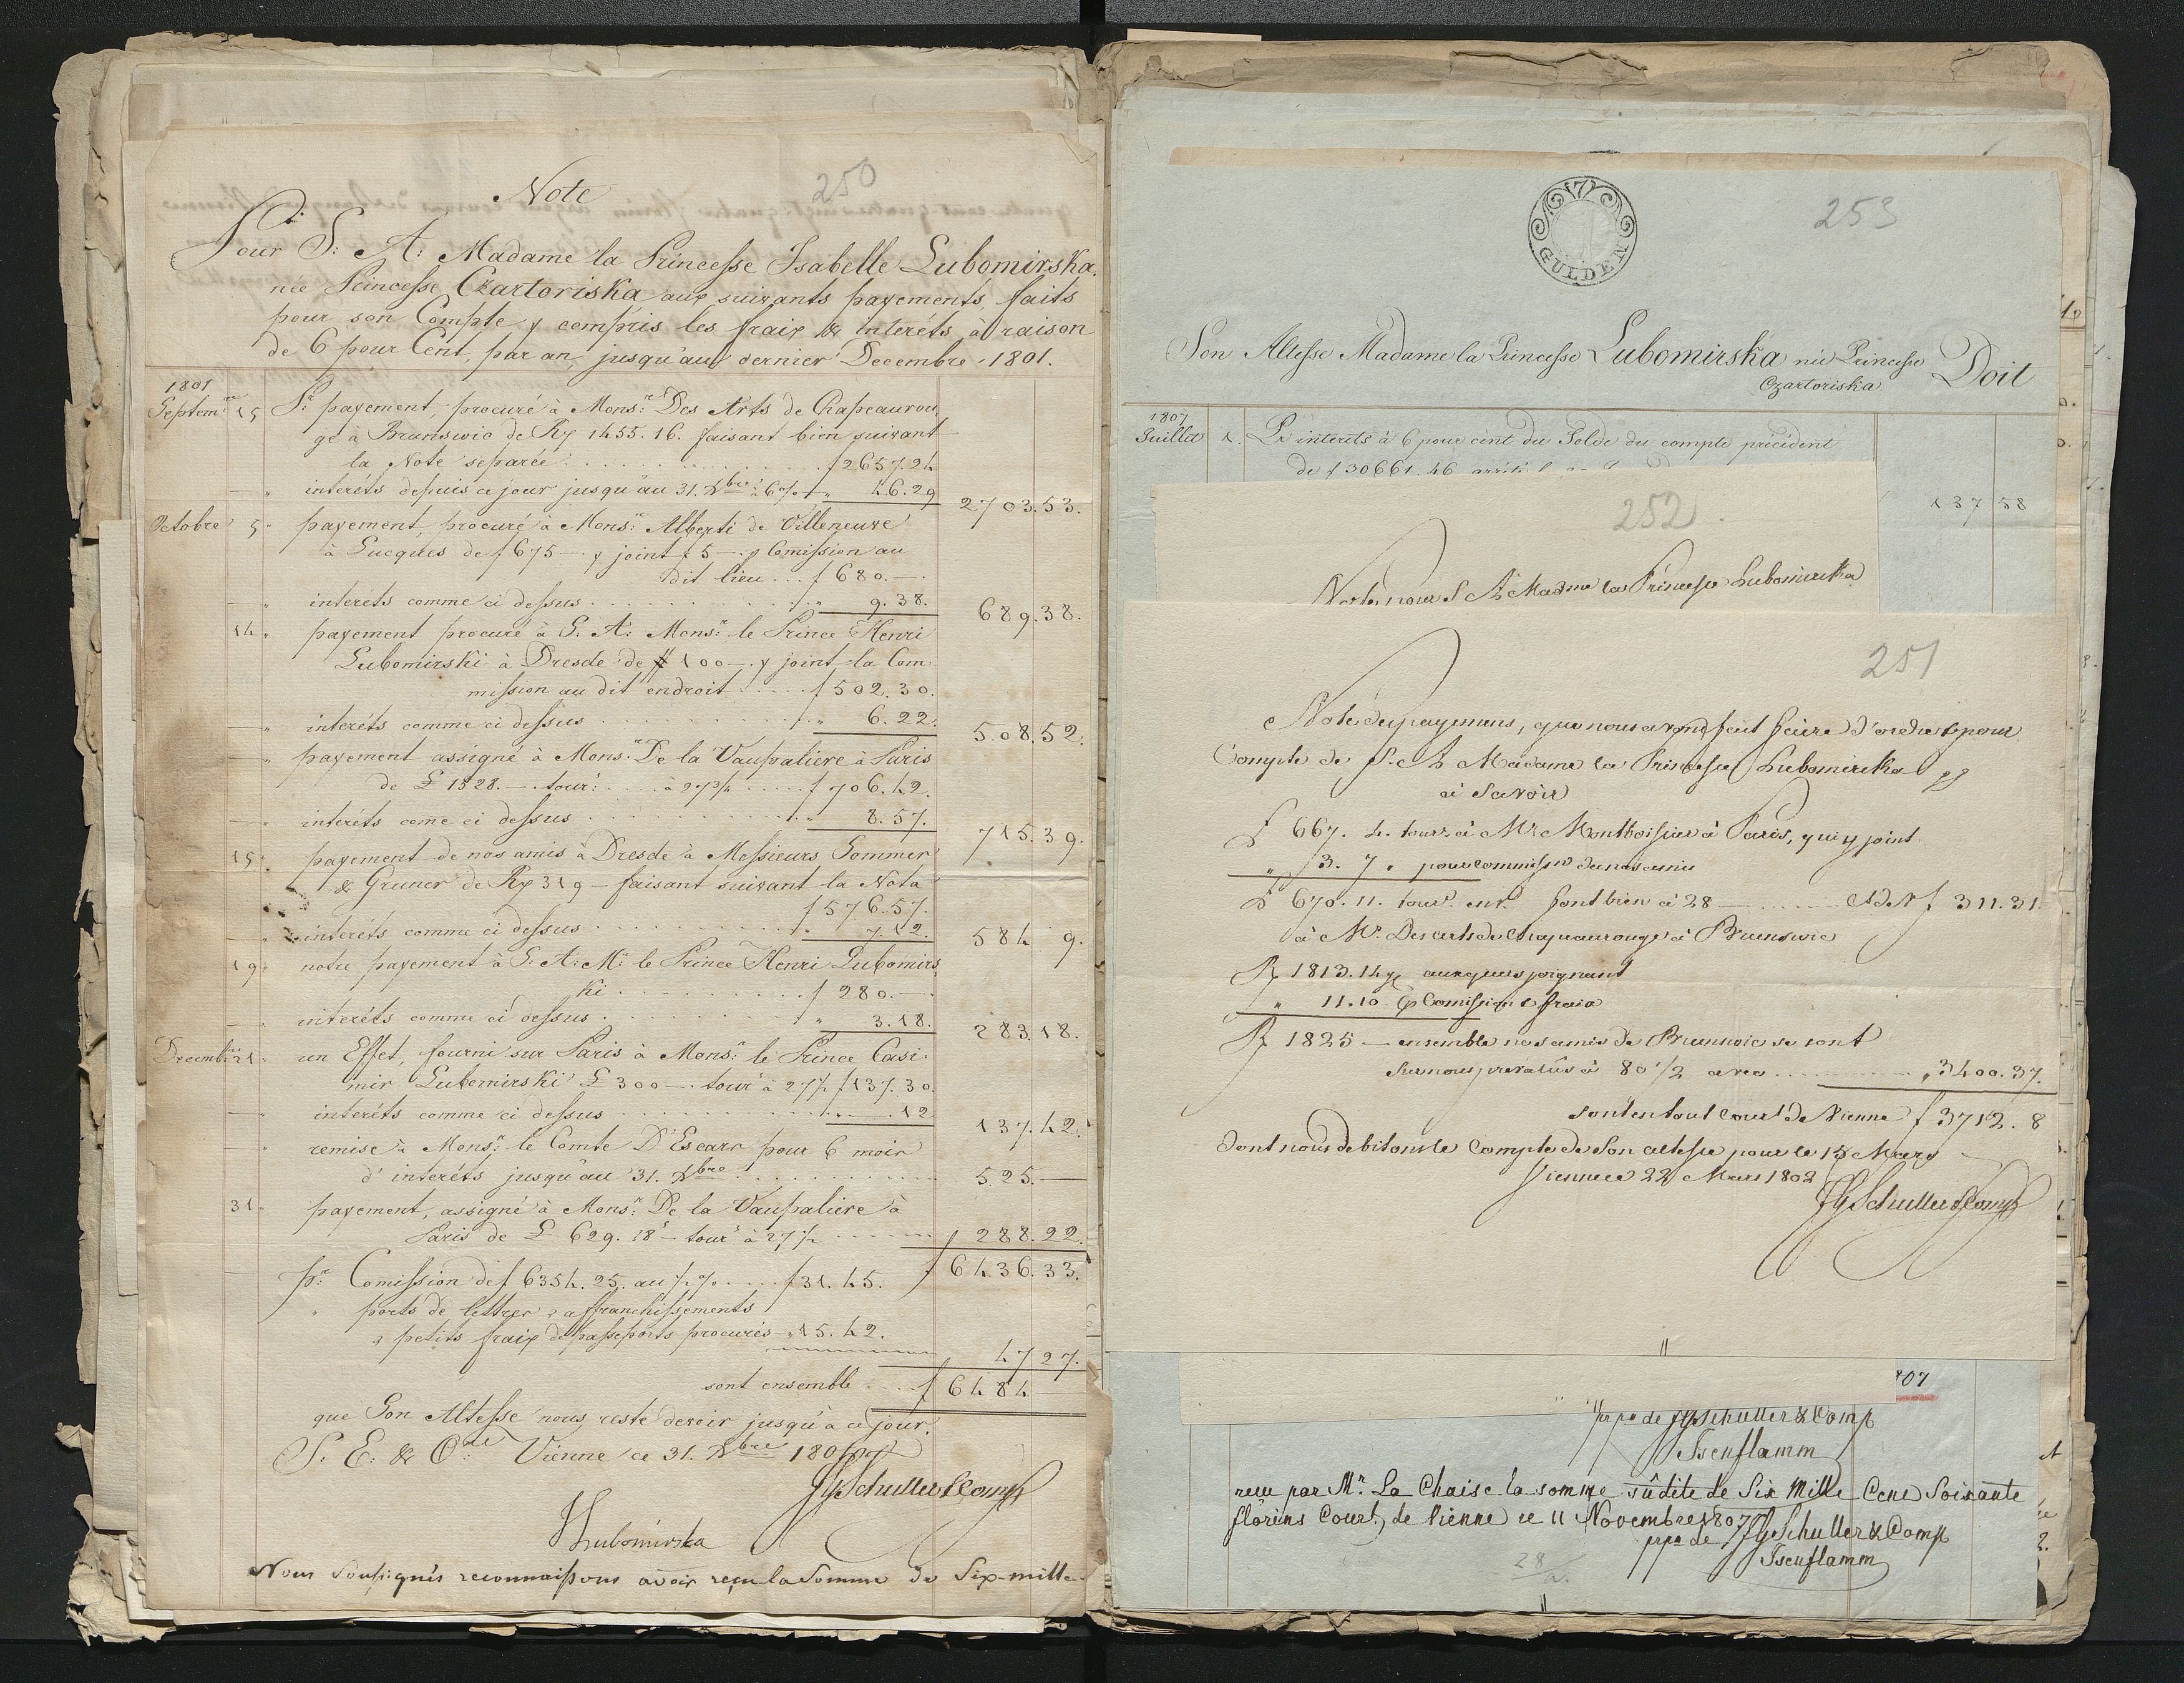 250
Note
Pour S: A: Madame la Princesse Isabelle Lubomirska.
née Princesse Czartoriska aux suivants payements, faits
pour son Compte y compris les fraix & interéts à raison
de 6 pour Cent, par an, jusqu'au dernier Decembre 1801.
1801
Septem.re 15 Pr payement, procuré à Mons.r Des Arts de Chapeaurou
ge à Brunswic de Rx 1455.16. faisant bien suivant
la Note separée . . . f 2657.24
" interéts depuis ce jour jusqu'au 31. Xbre à 6% " 46.29 2703.53.
Octobre 5 " payement, procuré à Mons.r Alberti de Villeneuve
à Lucques de f 675 — y joint f 5 — p Comission au
dit lieu . . . f 680.—.
" interets comme ci dessus . . . " 9.38. 689.38.
14 " payement procuré à S: A: Mons.r le Prince Henri
Lubomirski à Dresde de # 100 — y joint la Com
mission au dit endroit . . . f 502.30.
" interéts comme ci dessus . . . " 6.22. 508.52.
" payement assigné à Mons.r De la Vaupaliere à Paris
de £ 1528.— tour: . . . à 27 3/4 . . . f 706.42.
" interéts come ci dessus . . . " 8.57. 715.39.
15 " payement de nos amis à Dresde à Messieurs Sommer
& Gruner de Rx 319 — faisant suivant la Nota
f 576.57.
" interéts comme ci dessus . . . " 7.12. 584 9.
19 " notre payement à S: A: M.r le Prince Henri Lubomirs
ki . . . f 280.—.
" interéts comme ci dessus . . . " 3.18. 283.18.
Decemb.re 21 " un Effet, fourni sur Paris à Mons.r le Prince Casi
mir Lubomirski £ 300 —. tour.s à 27 1/2 f 137.30.
" interéts comme ci dessus . . . " .12 137.42.
" remise à Mons.r le Comte D'Escars pour 6 mois
d'interéts jusqu'au 31. Xbre . . . 525.—
31 " payement, assigné à Mons.r De la Vaupaliere à
Paris de £ 629.18s — tour.s à 27 1/2 . . . f 288.22.
f 6436.33.
pr Comission de f 6354.25. au 1/2 % . . . f 31.45.
" ports de lettres, affranchissements
& petits fraix de Passeports procurés " 15.42.
47 27.
sont ensemble . . . f 6484 —
que Son Altesse nous reste devoir jusqu'à ce jour.
S: E: & O.ns Vienne ce 31. Xbre 1801
JGSchuller & Comp
Lubomirska
Nous Soussignés reconnaissons avoir reçu la Somme de Six-mille
253
GULDEN
Son Altesse Madame la Princesse Lubomirska née Princesse Doit
Czartoriska
1807
Juillet 1. Pr interets à 6 pour cent du Solde du compte précédent
de f 30661.46
137 58
252
Note pour S A Madme la Princesse Lubomirska
251
Note des payemens, que nous avons fait faire d'ordre & pour
Compte de S. A. Madame la Princesse Lubomirska
à Savoir
£ 667. 4. tours à Mr Montboissier à Paris, qui y joint
" 3. 7. pour commission de nos amis
£ 670.11. tours. font bien à 28 — . . . f 311.31.
à Mr. Des arts de Chapeaurouge à Brunswic
Rx 1813.14 gr auxquels joignant
" 11.10. p Comission & fraix
Rx 1825 — ensemble nos amis de Brunswic se sont
sur nous prévalus à 80 1/2 avec . . . " 3400.37.
sont en tout court de Vienne f 3712. 8
dont nous debitons le Compte de Son altesse pour le 15 Mars
Vienne ce 22 Mars 1802
JGSchuller & Comp
07
prpa de JGSchuller & Comp
Isenflamm
reçu par Mr. La Chaise la somme sûdite de Six Mille Cent Soixante
florins Court. de Vienne ce 11 Novembre 1807
prpa de JGSchuller & Comp
Isenflamm
28